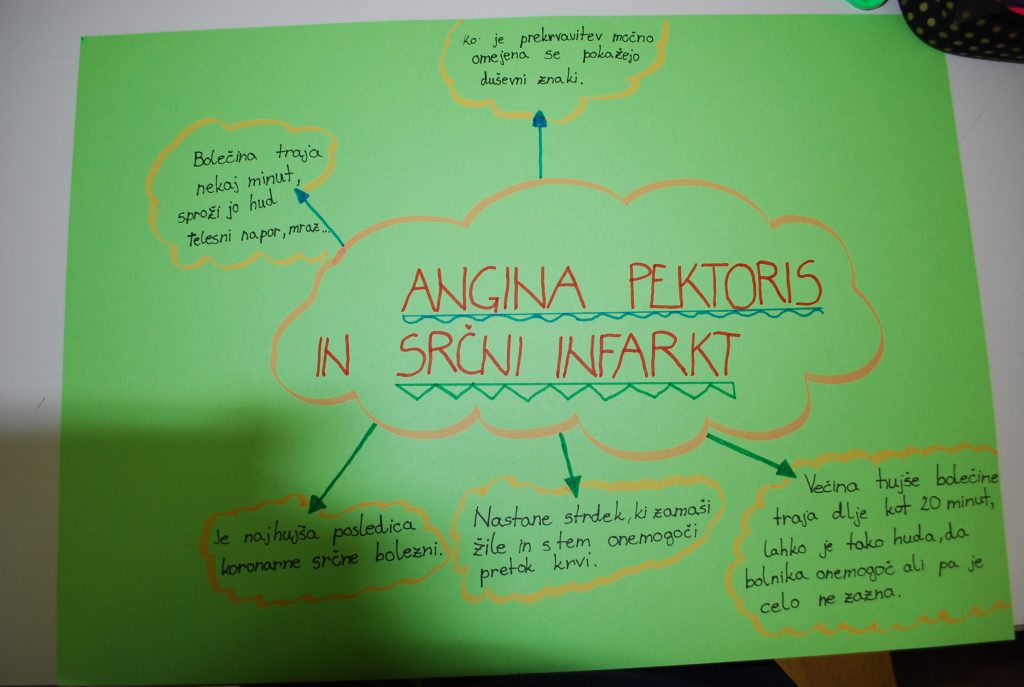 Ko je prekrvavitev močno
omejena se pokažejo
duševni znaki.
Bolečina traja
nekaj minut,
sproži jo hud
telesni napor, mraz...
ANGINA PEKTORIS
IN SRČNI INFARKT
Je najhujša posledica
koronarne srčne bolezni.
Nastane strdek, ki zamaši
žile in s tem onemogoči
pretok krvi.
Večina hujše bolečine
traja dlje kot 20 minut,
lahko je tako huda, da
bolnika onemogoč ali pa je
celo ne zazna.